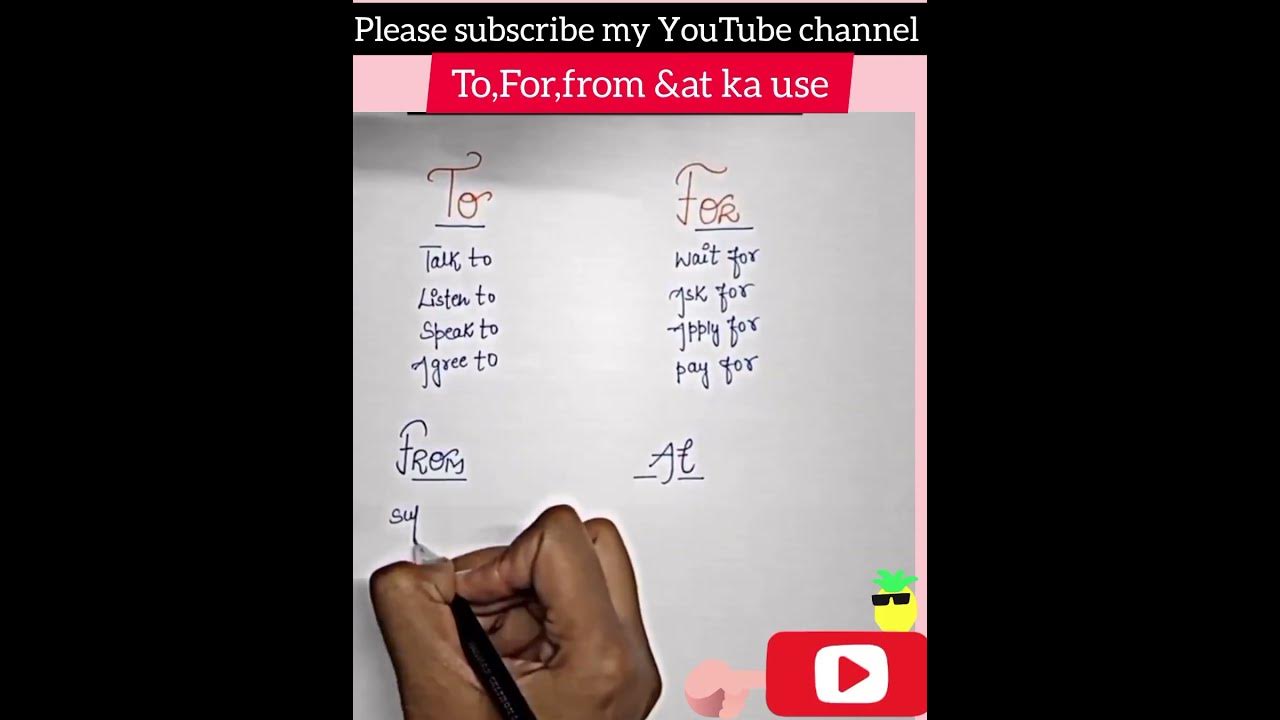 Please subscribe my YouTube channel
To,For,from &at ka use
To
Talk to
Listen to
Speak to
Agree to
For
Wait for
Ask for
Apply for
Pay for
From
At